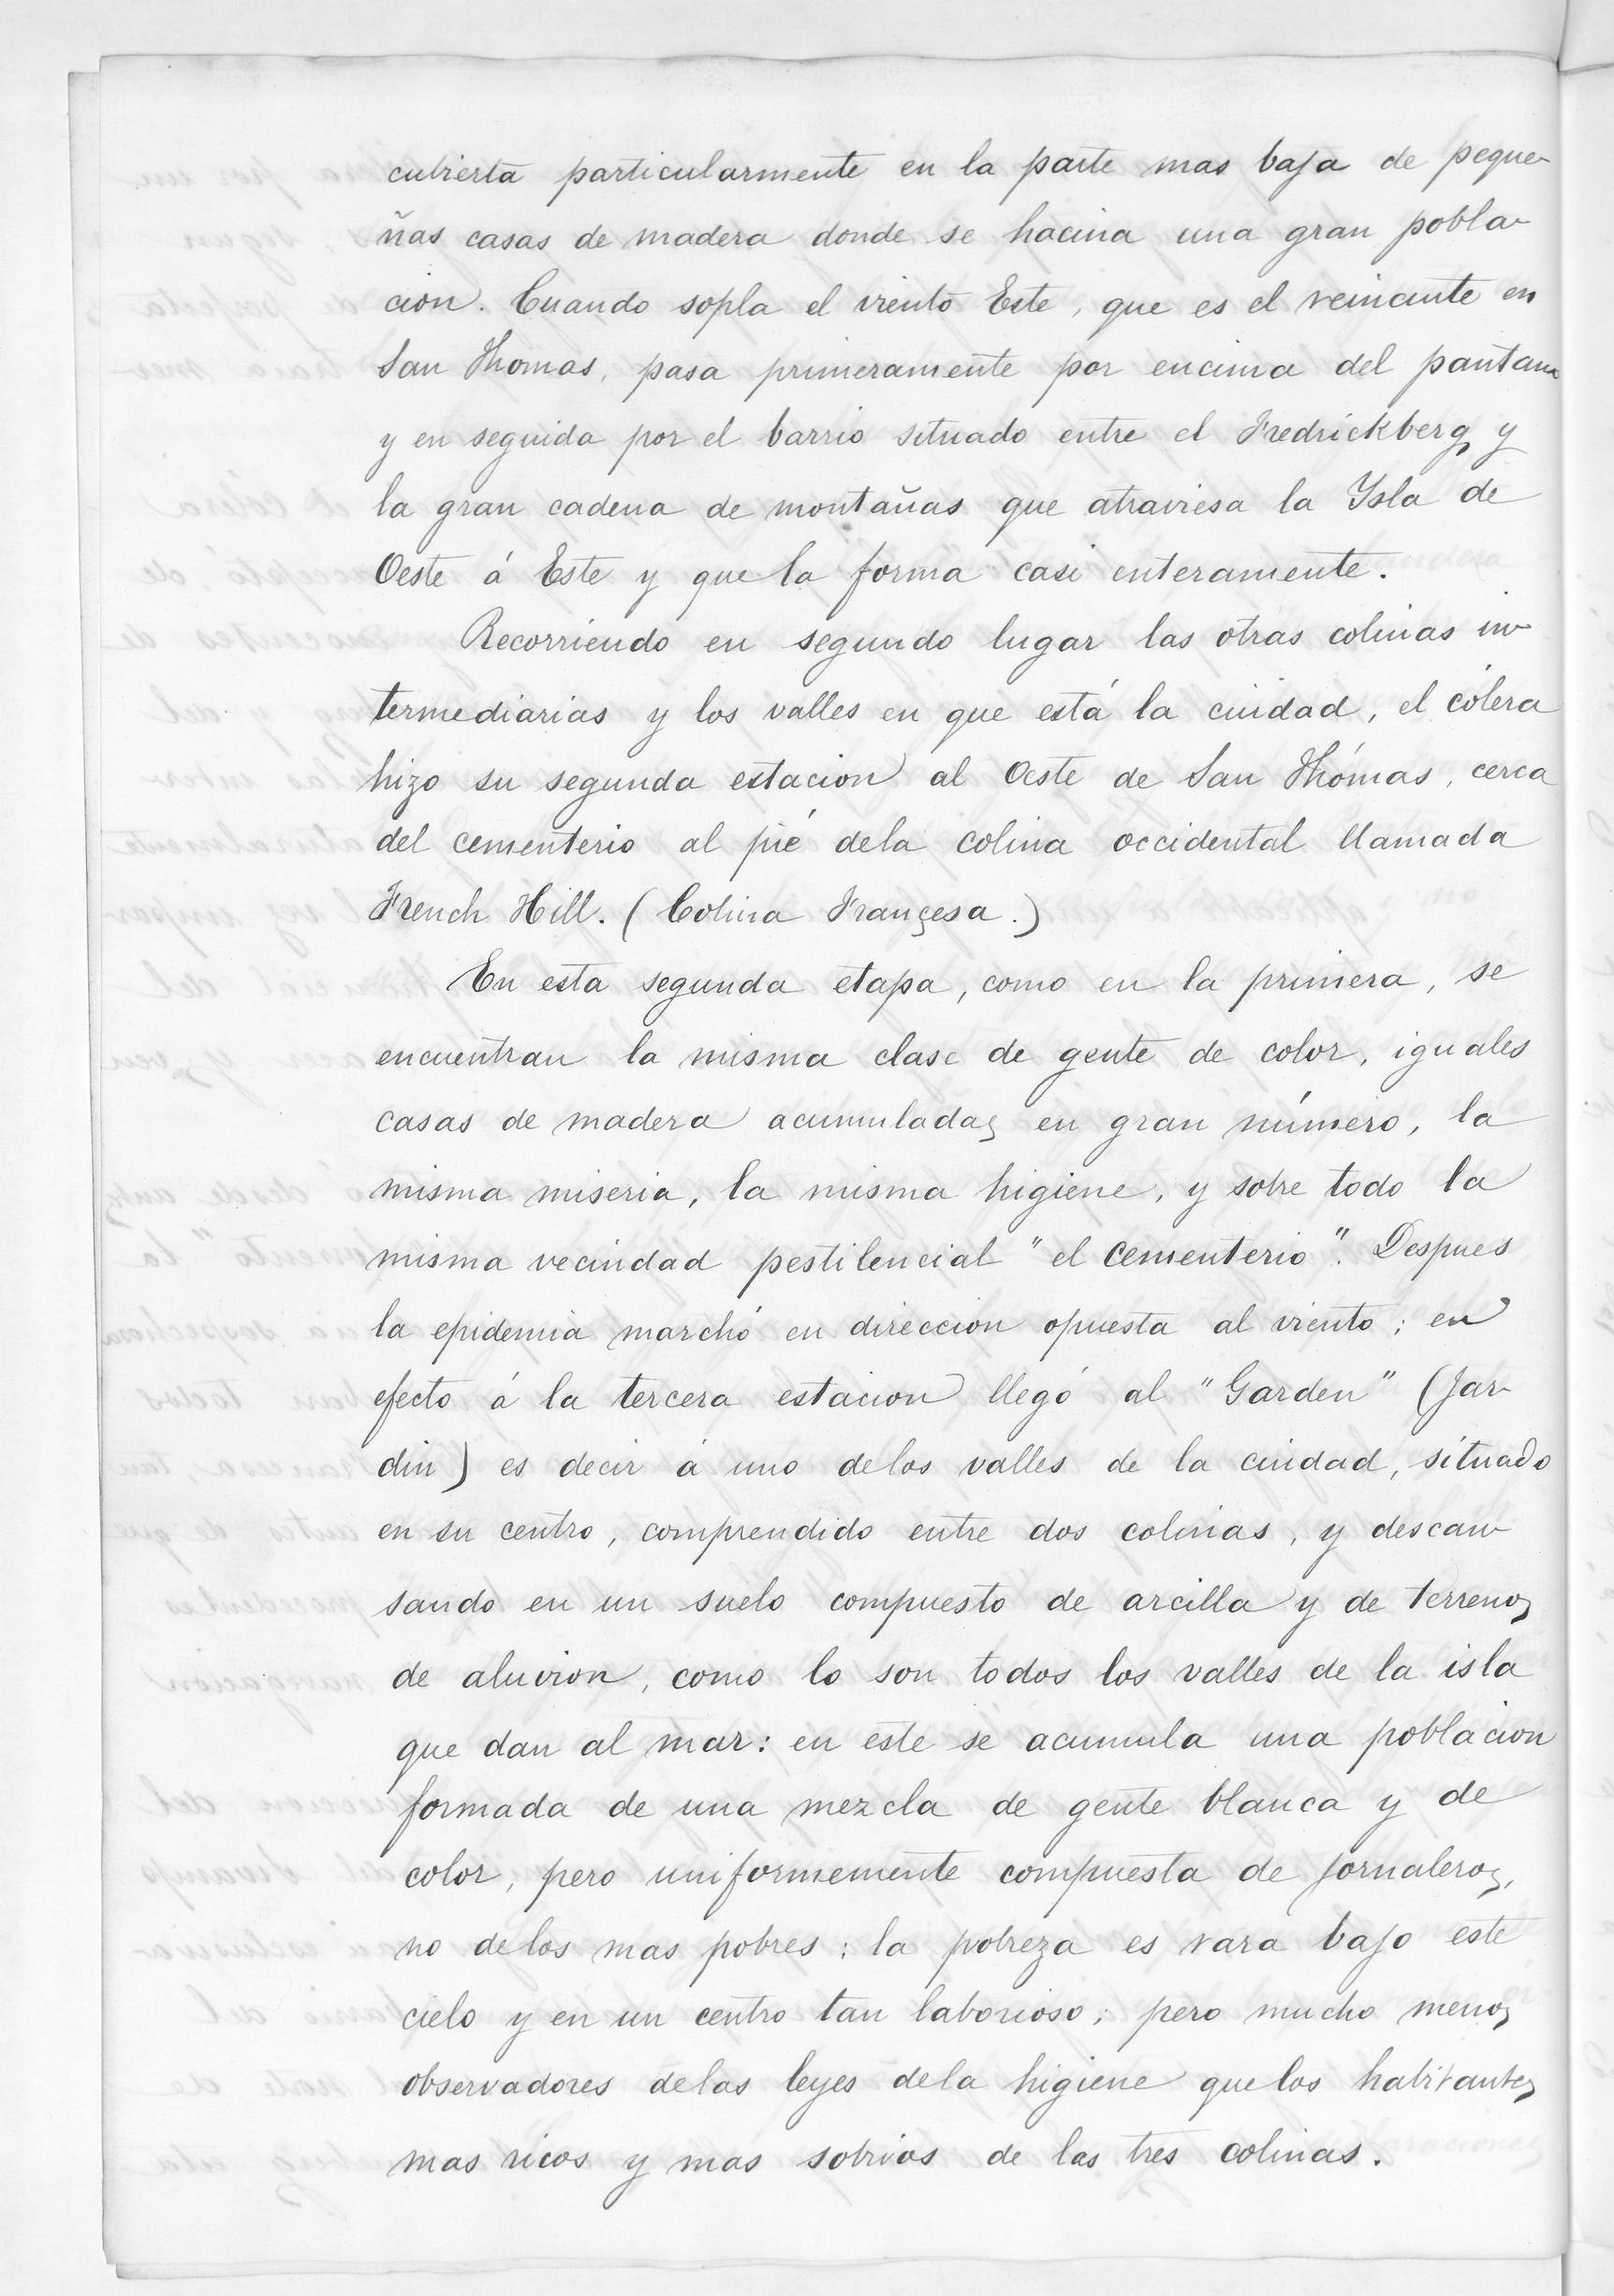 cubierta particularmente en la parte mas baja de peque-
ñas casas de madera donde se hacina una gran pobla-
cion. Cuando sopla el viento Este, que es el reinante en
San Thomas, pasa primeramente por encima del pantano
y en seguida por el barrio situado entre el Fredrickberg y
la gran cadena de montañas que atraviesa la Ysla de
Oeste á Este y que la forma casi enteramente.
Recorriendo en segundo lugar las otras colinas in-
termediarias y los valles en que está la ciudad, el cólera
hizo su segunda estacion al Oeste de San Thómas, cerca
del cementerio al pié dela colina occidental llamada
French Hill. (Colina Françesa.)
En esta segunda etapa, como en la primera, se
encuentran la misma clase de gente de color, iguales
casas de madera acumuladas en gran número, la
misma miseria, la misma higiene, y sobre todo la
misma vecindad pestilencial "el cementerio". Despues
la epidemia marchó en direccion opuesta al viento; en
efecto á la tercera estacion llegó al "Garden" (Jar-
din) es decir á uno delos valles de la ciudad, situado
en su centro, comprendido entre dos colinas, y descan-
sando en un suelo compuesto de arcilla y de terrenos
de aluvion, como lo son todos los valles de la isla
que dan al mar: en este se acumula una poblacion
formada de una mezcla de gente blanca y de
color, pero uniformemente compuesta de jornaleros,
no delos mas pobres; la pobreza es rara bajo este
cielo y en un centro tan laborioso; pero mucho menos
observadores delas leyes dela higiene que los habitantes
mas ricos y mas sobrios de las tres colinas.